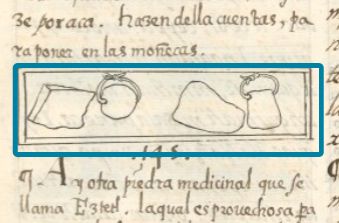 ze por aca. hazen della cuentas, pa
ra poner en las moñecas.
¶ Ay otra piedra medicinal que se
llama Eztetl. la qual es prouechosa pa